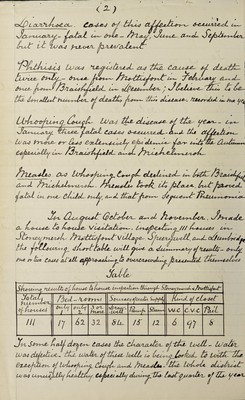 (2)
Diarrhœa. cases of this affection occurred in
January - fatal in one - May, June and September
but it was never prevalent
Phthisis was registered as the cause of death
twice only - one from Mottisfont in February and
one from Braishfield in December; I believe this to be
the smallest number of deaths from this disease, recorded in one year
Whooping Cough was the disease of the year - in
January three fatal cases occurred and the affection
was more or less extensively epidemic far into the Autumn
especially in Braishfield and Michelmersh.
Measles as Whooping Cough declined in both Braishfield
and Michelmersh Measles took its place but proved
fatal in one child only and that from Sequent Pneumonia
In August October and November, I made
a house to house visitation inspecting 111 houses in
Stoneymarsh Mottisfont village and
the following short table will give a summary of results - only
one or two cases at all approaching to overcrowding presented themselves
Table
Showing results of house to house inspection through Stoneymarsh & Mottisfont
Total number of houses | Bed-rooms | Source of water supply | Kind of closet
only 1 | only 2 | 3 or more | Well | Pump | Stream | W C | E V C | Pail
111 | 17 | 62 | 32 | 84 | 15 | 12 | 6 | 97 | 8
In some half dozen cases the character of the well-water
was defective. the water of these wells is being looked to. with the
exception of Whooping Cough and Measles. the whole district
was unusually healthy especially during the last quarter of the year